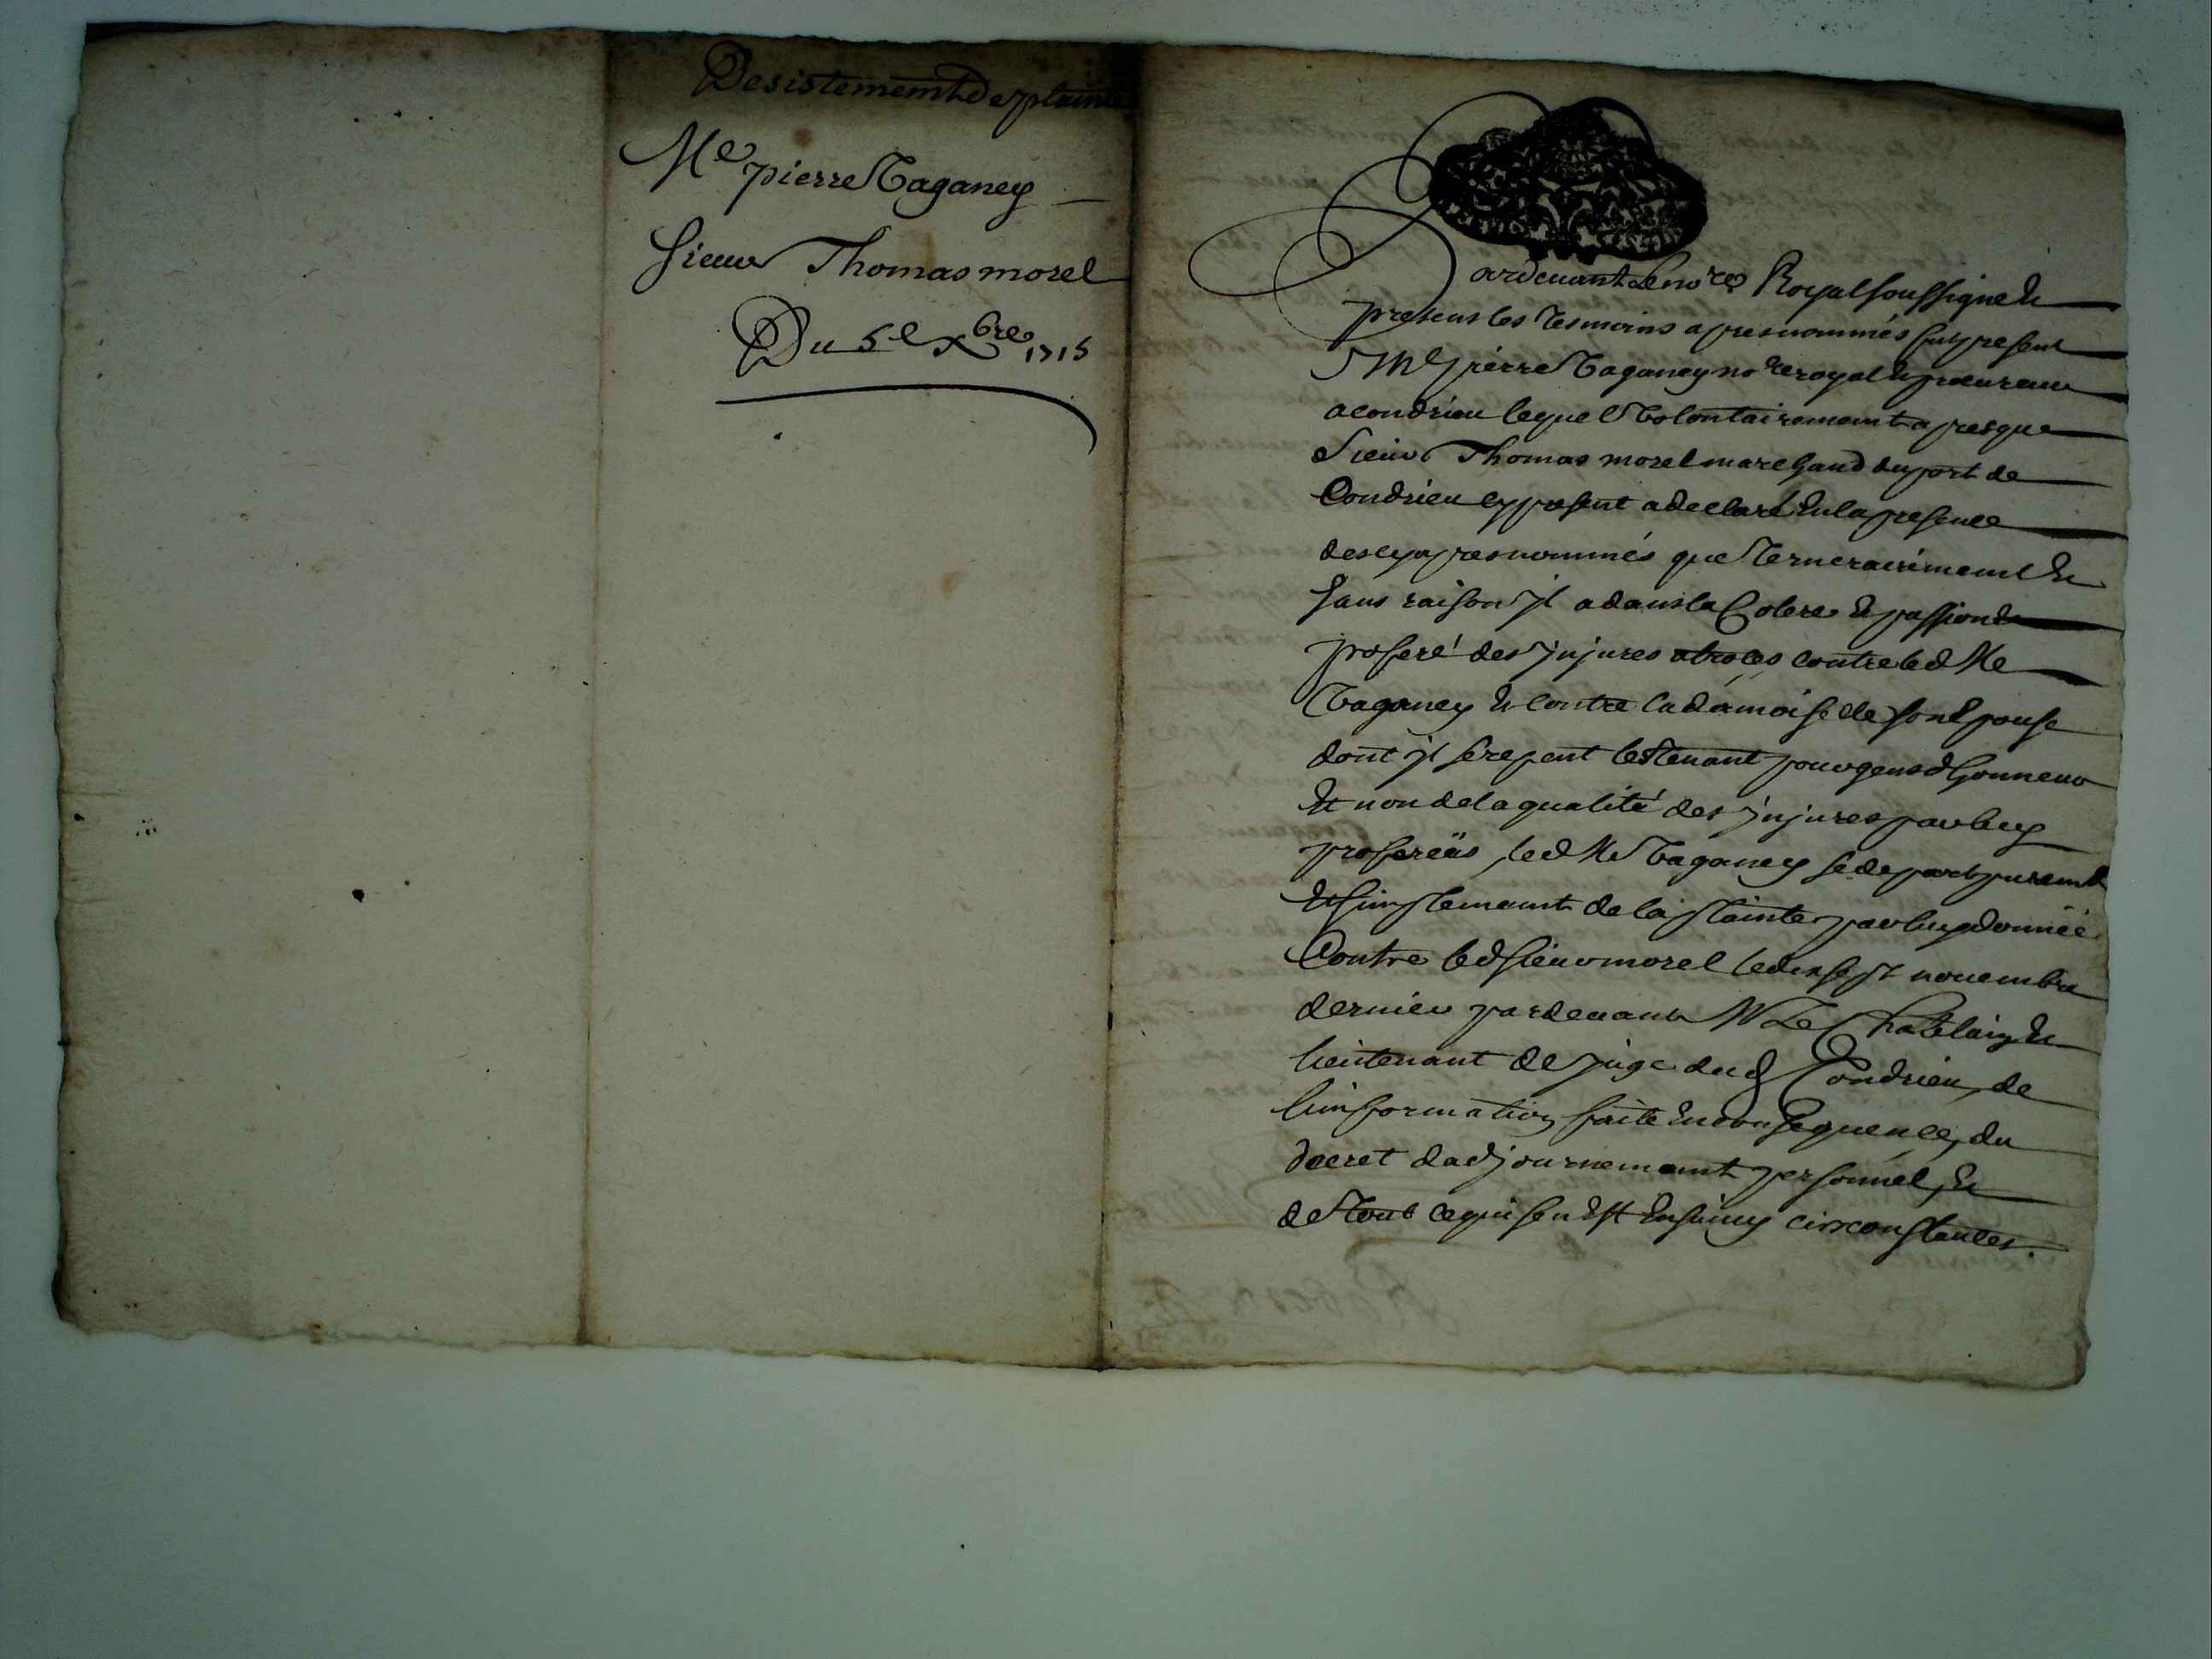 Desistement De plainte
Me pierre Vaganey
Sieur Thomas morel
Du 5e Xbre 1715
Pardevant Le nore Royal soussigne Et
presens les tesmoins apres nommés fut present
Me pierre Vaganey nore royal Et procureur
a condrieu lequel Volontairement apres que
Sieur Thomas morel marchand du port de
Condrieu cy present a declaré En la presence
des cy apres nommés que temerairement Et
sans raison jl a dans la Colere Et passion
proferé des jnjures atroces contre led Me
Vaganey Et contre la damoiselle son Epouse
dont jl se repent les tenant pour gens dhonneur
Et non de la qualité des jnjures par luy
proferéés, led Me Vaganey se depart purement
Et simplement de la plainte par luy donnéé
Contre led sieur morel le dixsept novembre
dernier pardevant Mr Le Chatelain Et
lieutenant de juge dud Condrieu, de
linformation faite En consequence, du
decret dadjournement personnel, Et
de tout ce qui sen Est Ensuivy circonstances.